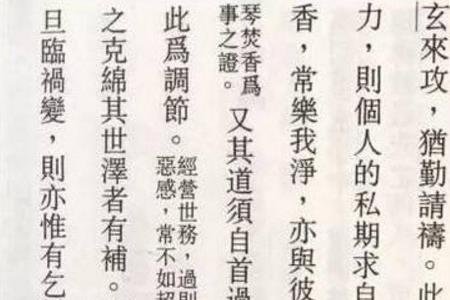 玄來攻，猶勤請禱。此
力，則個人的私期求自
香，常樂我淨，亦與彼
琴焚香爲
事之證。
又其道須自首過
此爲調節。
經營世務，過則
惡感，常不如超
之克綿其世澤者有補。
旦臨禍變，則亦惟有乞